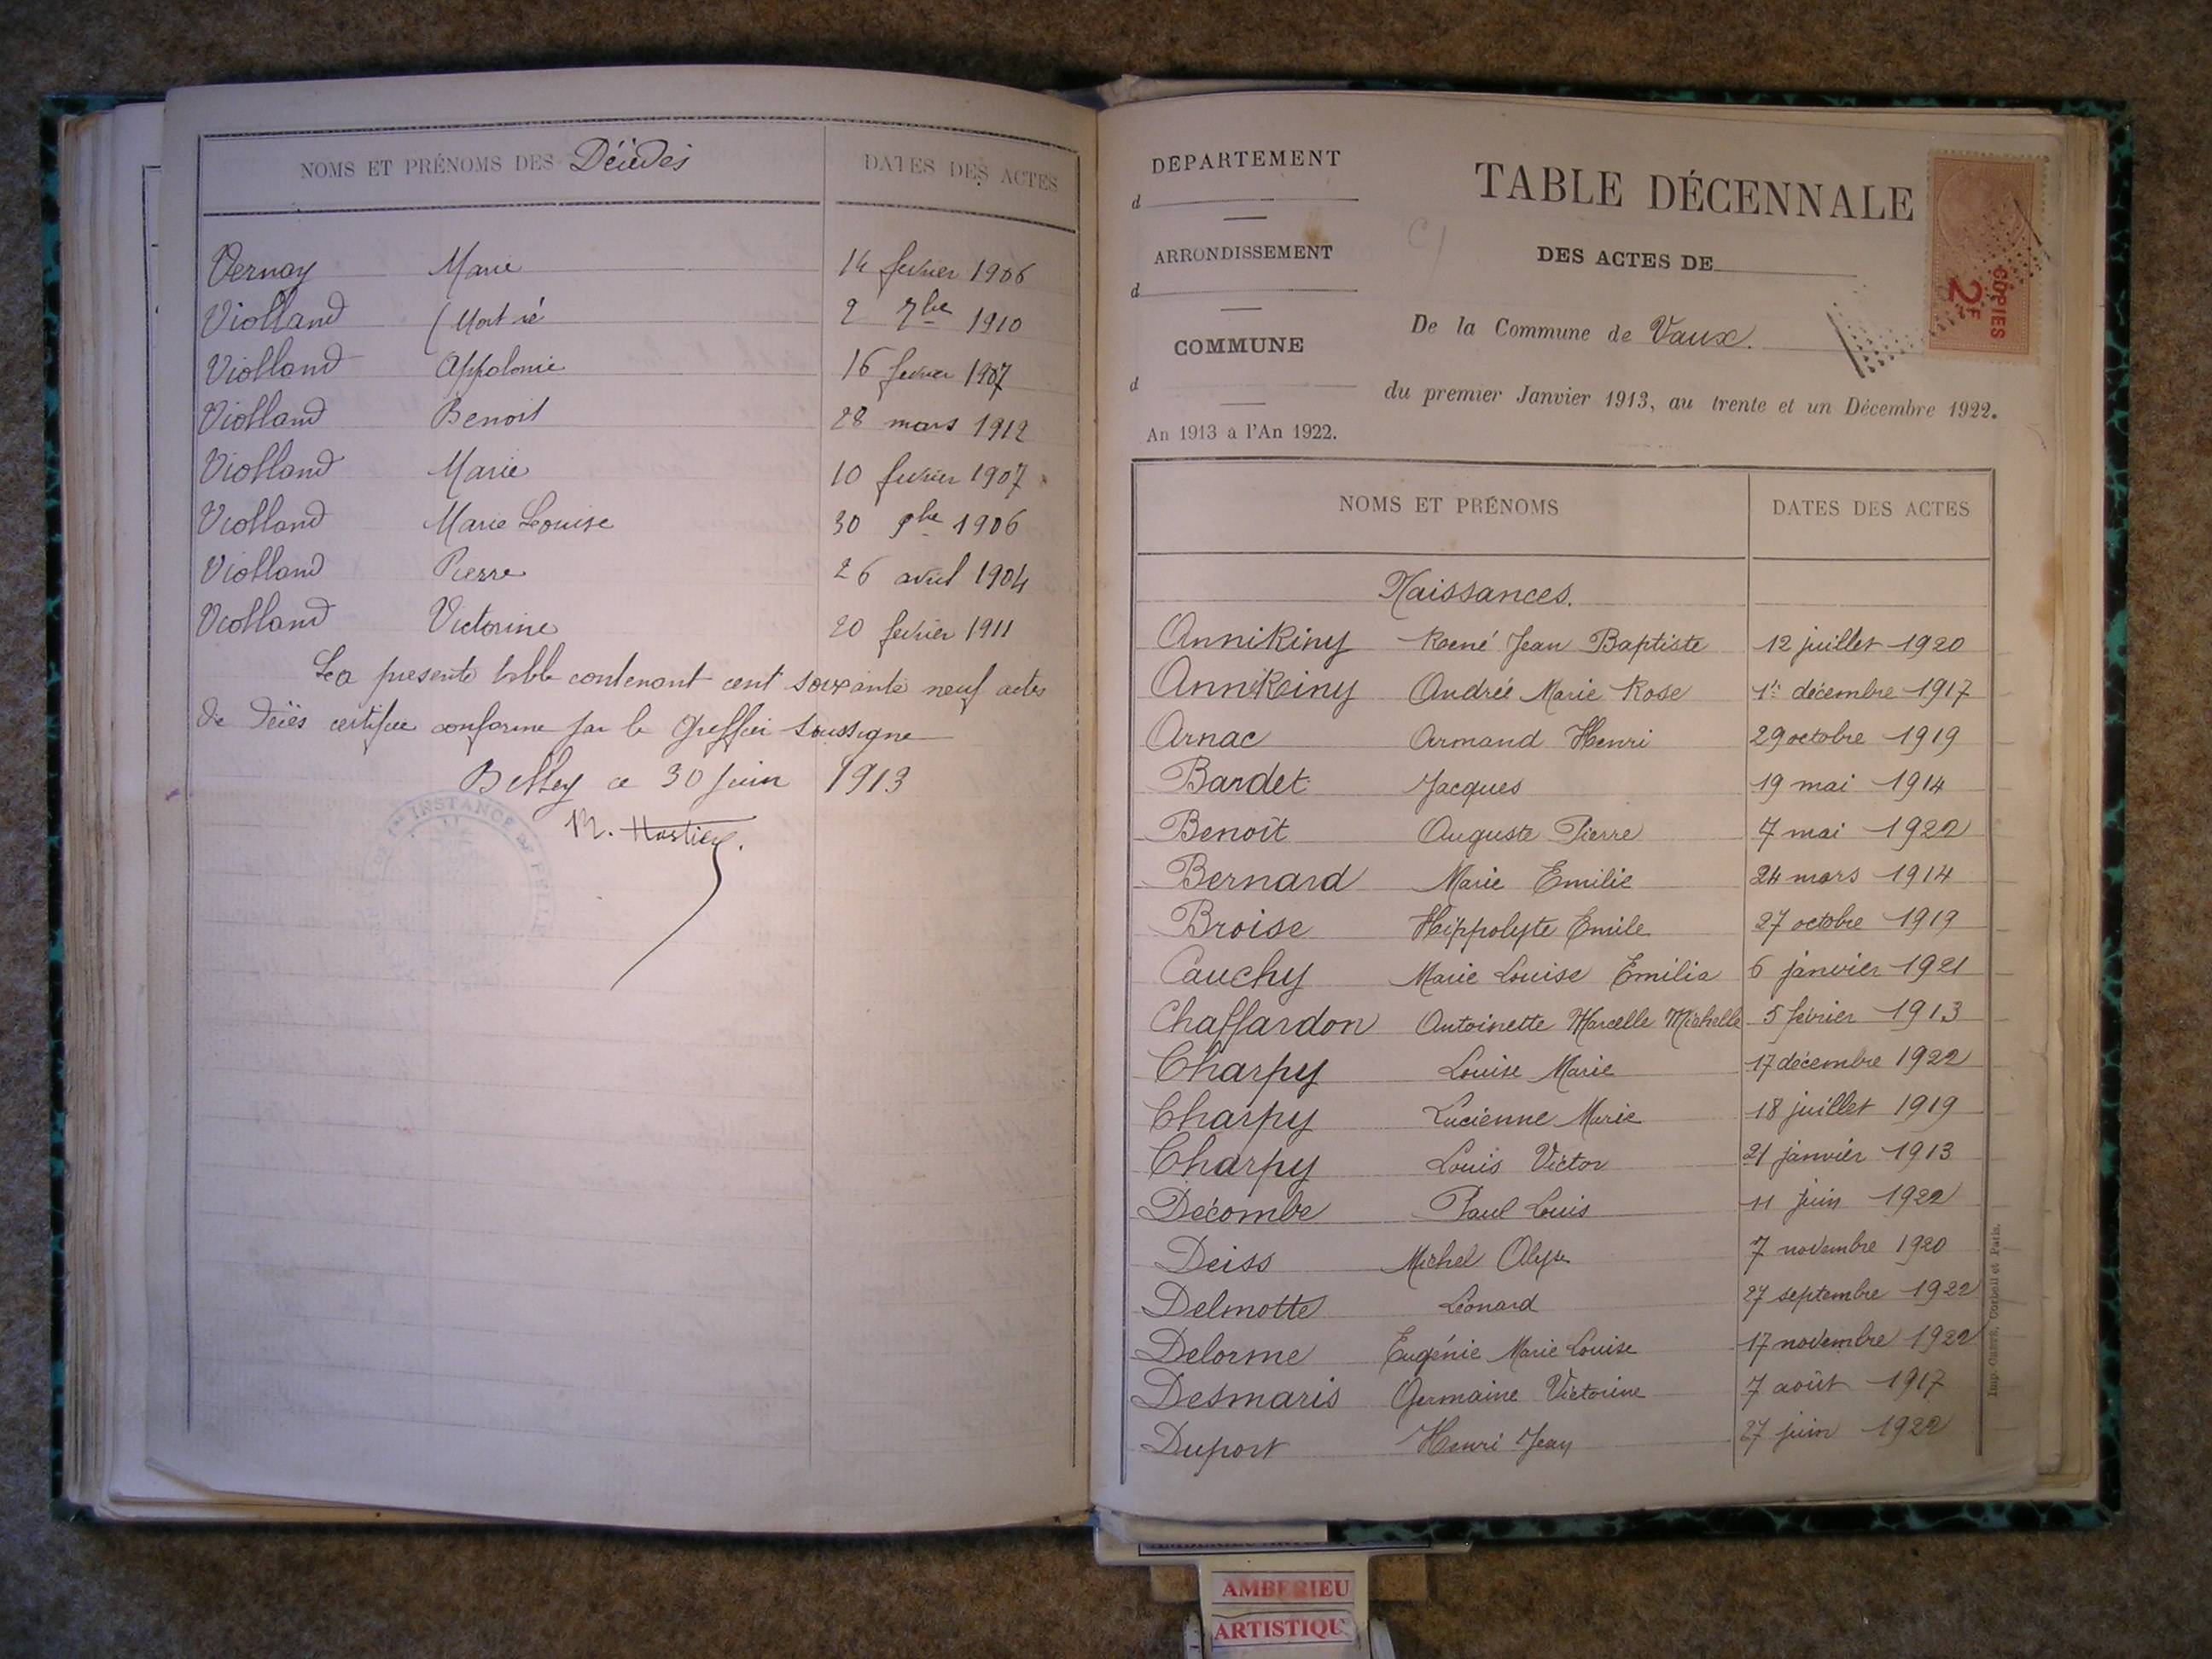 NOMS ET PRÉNOMS DES Décédés
DATES DES ACTES
Vernay Marie 14 fevrier 1906
Violland (Mort né 2 7bre 1910
Violland Appolonie 16 fevrier 1907
Violland Benoit 28 mars 1912
Violland Marie 10 fevrier 1907
Violland Marie Louise 30 9bre 1906
Violland Pierre 26 avril 1904
Violland Victorine 20 fevrier 1911
La presente table contenant cent soixante neuf actes
de décès certifiée conforme par le Greffier soussigné
Belley ce 30 Juin 1913
INSTANCE
DEPARTEMENT
d
ARRONDISSEMENT
d
COMMUNE
d
An 1913 à l'An 1922.
TABLE DÉCENNALE
DES ACTES DE
De la Commune de Vaux.
du premier Janvier 1913, au trente et un Décembre 1922.
COPIES
2F
NOMS ET PRÉNOMS
DATES DES ACTES
Naissances.
AnniKiny René Jean Baptiste 12 juillet 1920
AnniKiny Andrée Marie Rose 1er décembre 1917
Arnac Armand Henri 29 octobre 1919
Bardet Jacques 19 mai 1914
Benoît Auguste Pierre 7 mai 1922
Bernard Marie Emilie 24 mars 1914
Broise Hippolyte Emile 27 octobre 1919
Cauchy Marie Louise Emilia 6 janvier 1921
Chaffardon Antoinette Marcelle Michelle 5 février 1913
Charpy Louise Marie 17 décembre 1922
Charpy Lucienne Marie 18 juillet 1919
Charpy Louis Victor 21 janvier 1913
Décombe Paul Louis 11 juin 1922
Deiss Michel 7 novembre 1920
Delmotte Léonard 27 septembre 1922
Delorme Eugénie Marie Louise 17 novembre 1922
Desmaris Germaine Victorine 7 août 1917
Duport Henri Jean 27 juin 1922
AMBERIEU
ARTISTIQU